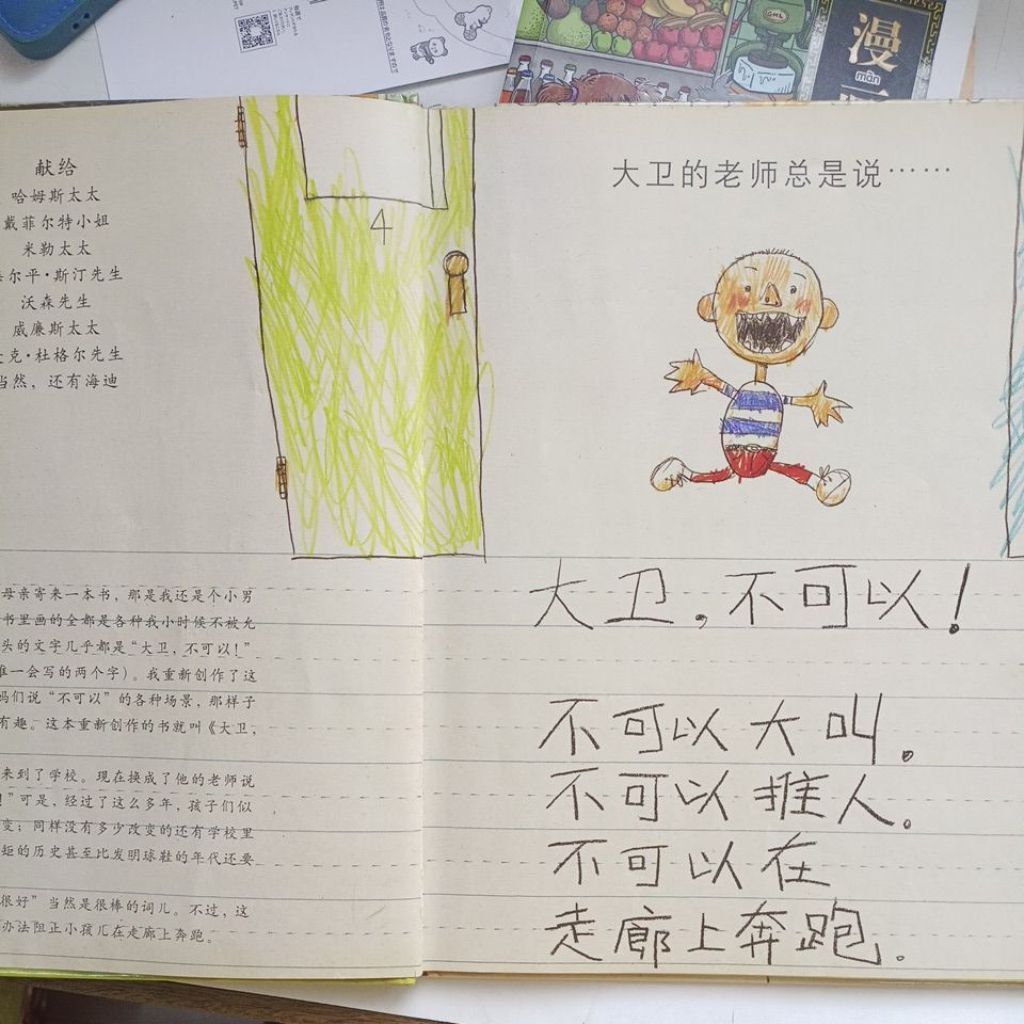 漫
màn
献给
哈姆斯太太
戴菲尔特小姐
米勒太太
尔平·斯汀先生
沃森先生
威廉斯太太
克·杜格尔先生
当然，还有海迪
4
母亲寄来一本书，那是我还是个小男
书里画的全都是各种我小时候不被允
头的文字几乎都是“大卫，不可以！”
唯一会写的两个字）。我重新创作了这
妈们说“不可以”的各种场景，那样子
有趣。这本重新创作的书就叫《大卫，
来到了学校。现在换成了他的老师说
！”可是，经过了这么多年，孩子们似
变；同样没有多少改变的还有学校里
短的历史甚至比发明球鞋的年代还要
很好”当然是很棒的词儿。不过，这
办法阻止小孩儿在走廊上奔跑。
大卫的老师总是说……
大卫，不可以！
不可以大叫。
不可以推人。
不可以在
走廊上奔跑。